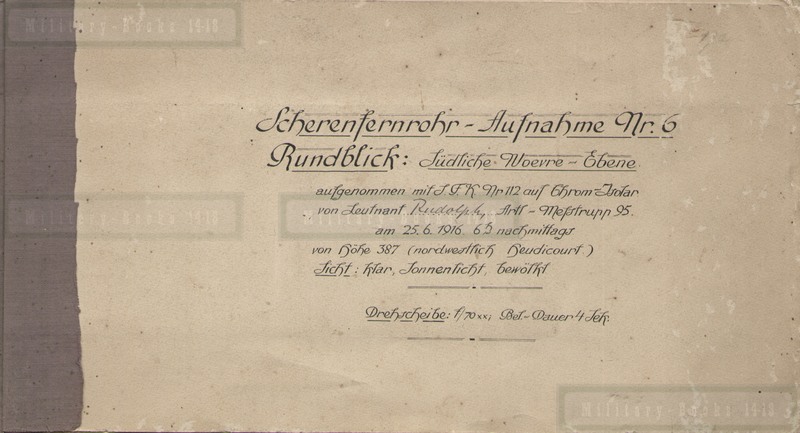 Military-Books 1418
Scherenfernrohr - Aufnahme Nr. 6
Rundblick: Südliche-Woevre-Ebene.
aufgenommen mit S.F.K Nr 112 auf Chrom-Isolar
von Leutnant Rudolph, Artl-Meßtrupp 95.
am 25.6.1916 6h nachmittags
von Höhe 387 (nordwestlich Heudicourt.)
Sicht: klar, Sonnenlicht, bewölkt
Drehscheibe: f/70 xx; Bel.-Dauer 4 Sek.
Military-Books 1418